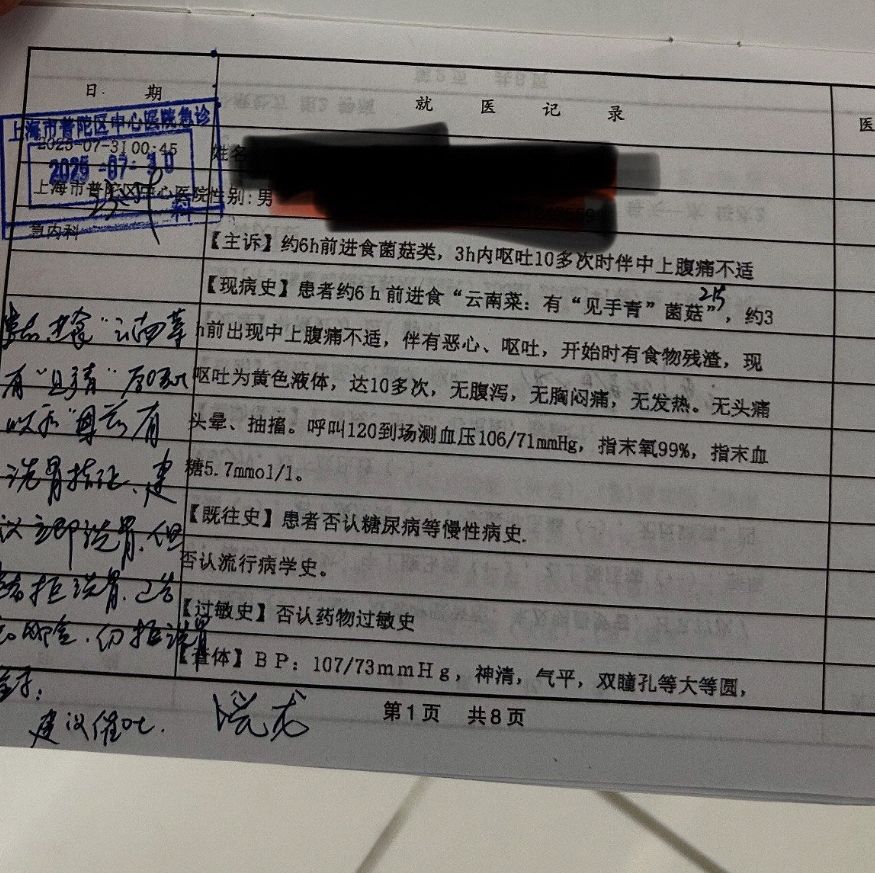 日 期
就 医 记 录
医
上海市普陀区中心医院急诊
2025-07-31 00:45
2025-07-30
上海市普陀区中心医院
科
急内科
姓名
性别:男
【主诉】约6h前进食菌菇类，3h内呕吐10多次时伴中上腹痛不适
【现病史】患者约6h前进食“云南菜：有“见手青”菌菇”，约3
h前出现中上腹痛不适，伴有恶心、呕吐，开始时有食物残渣，现
呕吐为黄色液体，达10多次，无腹泻，无胸闷痛，无发热。无头痛
头晕、抽搐。呼叫120到场测血压106/71mmHg，指末氧99%，指末血
糖5.7mmol/l。
【既往史】患者否认糖尿病等慢性病史.
否认流行病学史。
【过敏史】否认药物过敏史
【查体】BP：107/73mmHg，神清，气平，双瞳孔等大等圆，
第1页 共8页
“云南菜
有
洗胃指征、建
议立即洗胃，但
拒洗胃
仍拒洗胃
建议催吐.